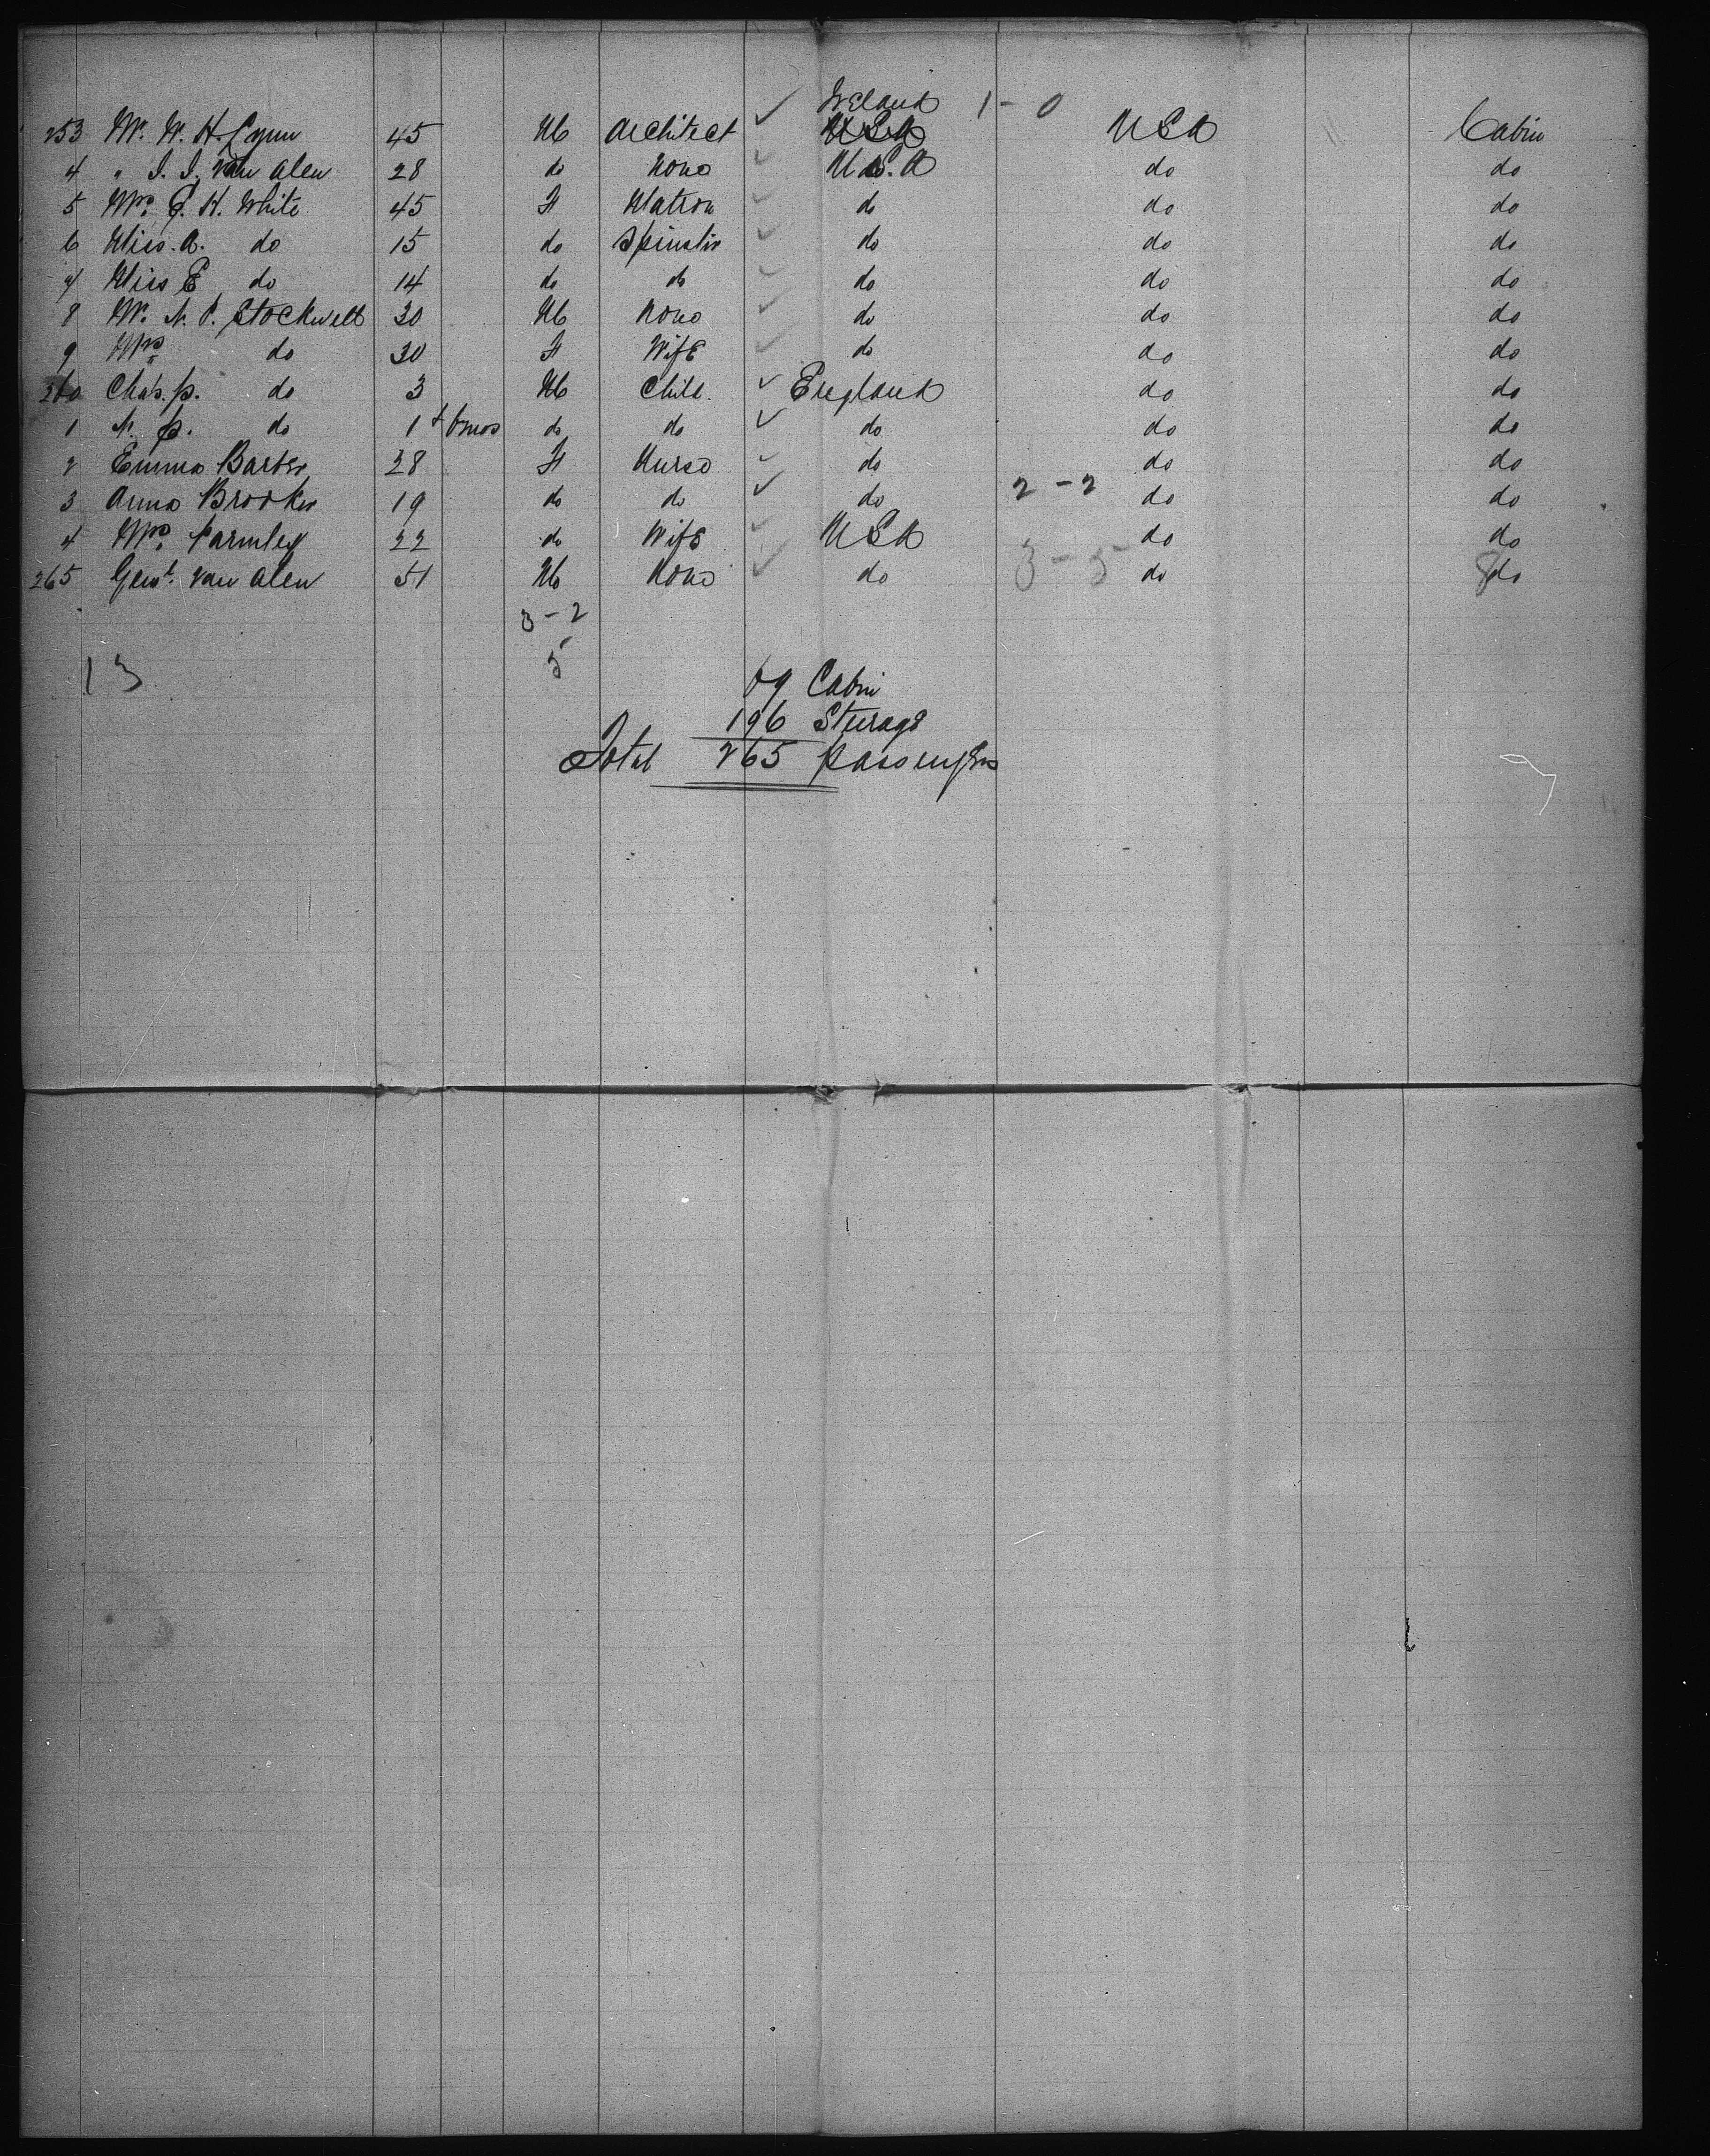 Ireland 1-0
253 Mr. W. H. Lynn 45 M Architect ✓ USA USA Cabin
4 " J. J. Van Alen 28 do None ✓ U.S.A do do
5 Mrs. E. H. White 45 F Matron ✓ do do do
6 Miss. A. do 15 do Spinster ✓ do do do
7 Miss E do 14 do do ✓ do do do
8 Mr. N. P. Stockwell 30 M None ✓ do do do
9 Mrs do 30 F Wife ✓ do do do
260 Chas. p. do 3 M Child. ✓ England do do
1 N. p. do 1 + 6mos do do ✓ do do do
2 Emma Barber 28 F Nurse ✓ do do do
3 Anna Brooker 19 do do ✓ do 2-2 do do
4 Mrs. Parmley 22 do Wife ✓ USA do do
265 Genl. Van Alen 51 M None ✓ do 3-5 do 8 do
3-2
13 5
69 Cabin
196 Steerage
Total 265 passengers